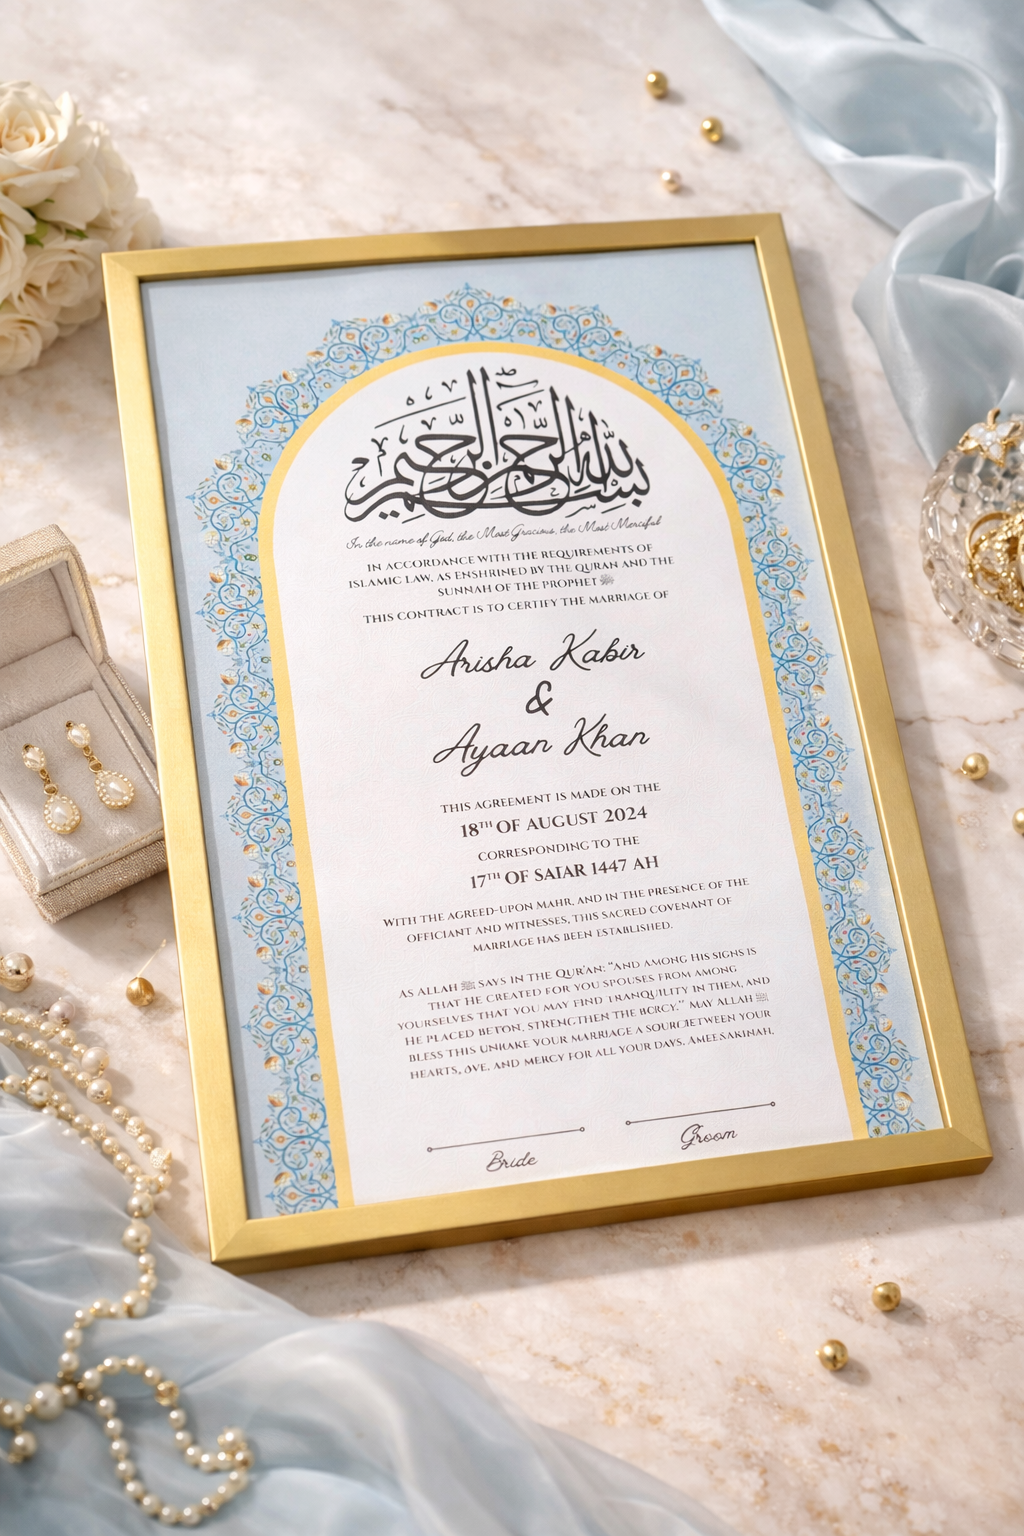 بسم الله الرحمن الرحيم
In the name of God, the Most Gracious, the Most Merciful
IN ACCORDANCE WITH THE REQUIREMENTS OF
ISLAMIC LAW, AS ENSHRINED BY THE QURAN AND THE
SUNNAH OF THE PROPHET ﷺ
THIS CONTRACT IS TO CERTIFY THE MARRIAGE OF
Arisha Kabir
&
Ayaan Khan
THIS AGREEMENT IS MADE ON THE
18TH OF AUGUST 2024
CORRESPONDING TO THE
17TH OF SAFAR 1447 AH
WITH THE AGREED-UPON MAHR, AND IN THE PRESENCE OF THE
OFFICIANT AND WITNESSES, THIS SACRED COVENANT OF
MARRIAGE HAS BEEN ESTABLISHED.
AS ALLAH SAYS IN THE QUR'AN: "AND AMONG HIS SIGNS IS
THAT HE CREATED FOR YOU SPOUSES FROM AMONG
YOURSELVES THAT YOU MAY FIND TRANQUILITY IN THEM, AND
HE PLACED BETON, STRENGTHEN THE BORCY." MAY ALLAH
BLESS THIS UNHAKE YOUR MARRIAGE A SOURCIETWEEN YOUR
HEARTS, OVE, AND MERCY FOR ALL YOUR DAYS. AMEE SAKINAH,
Bride
Groom